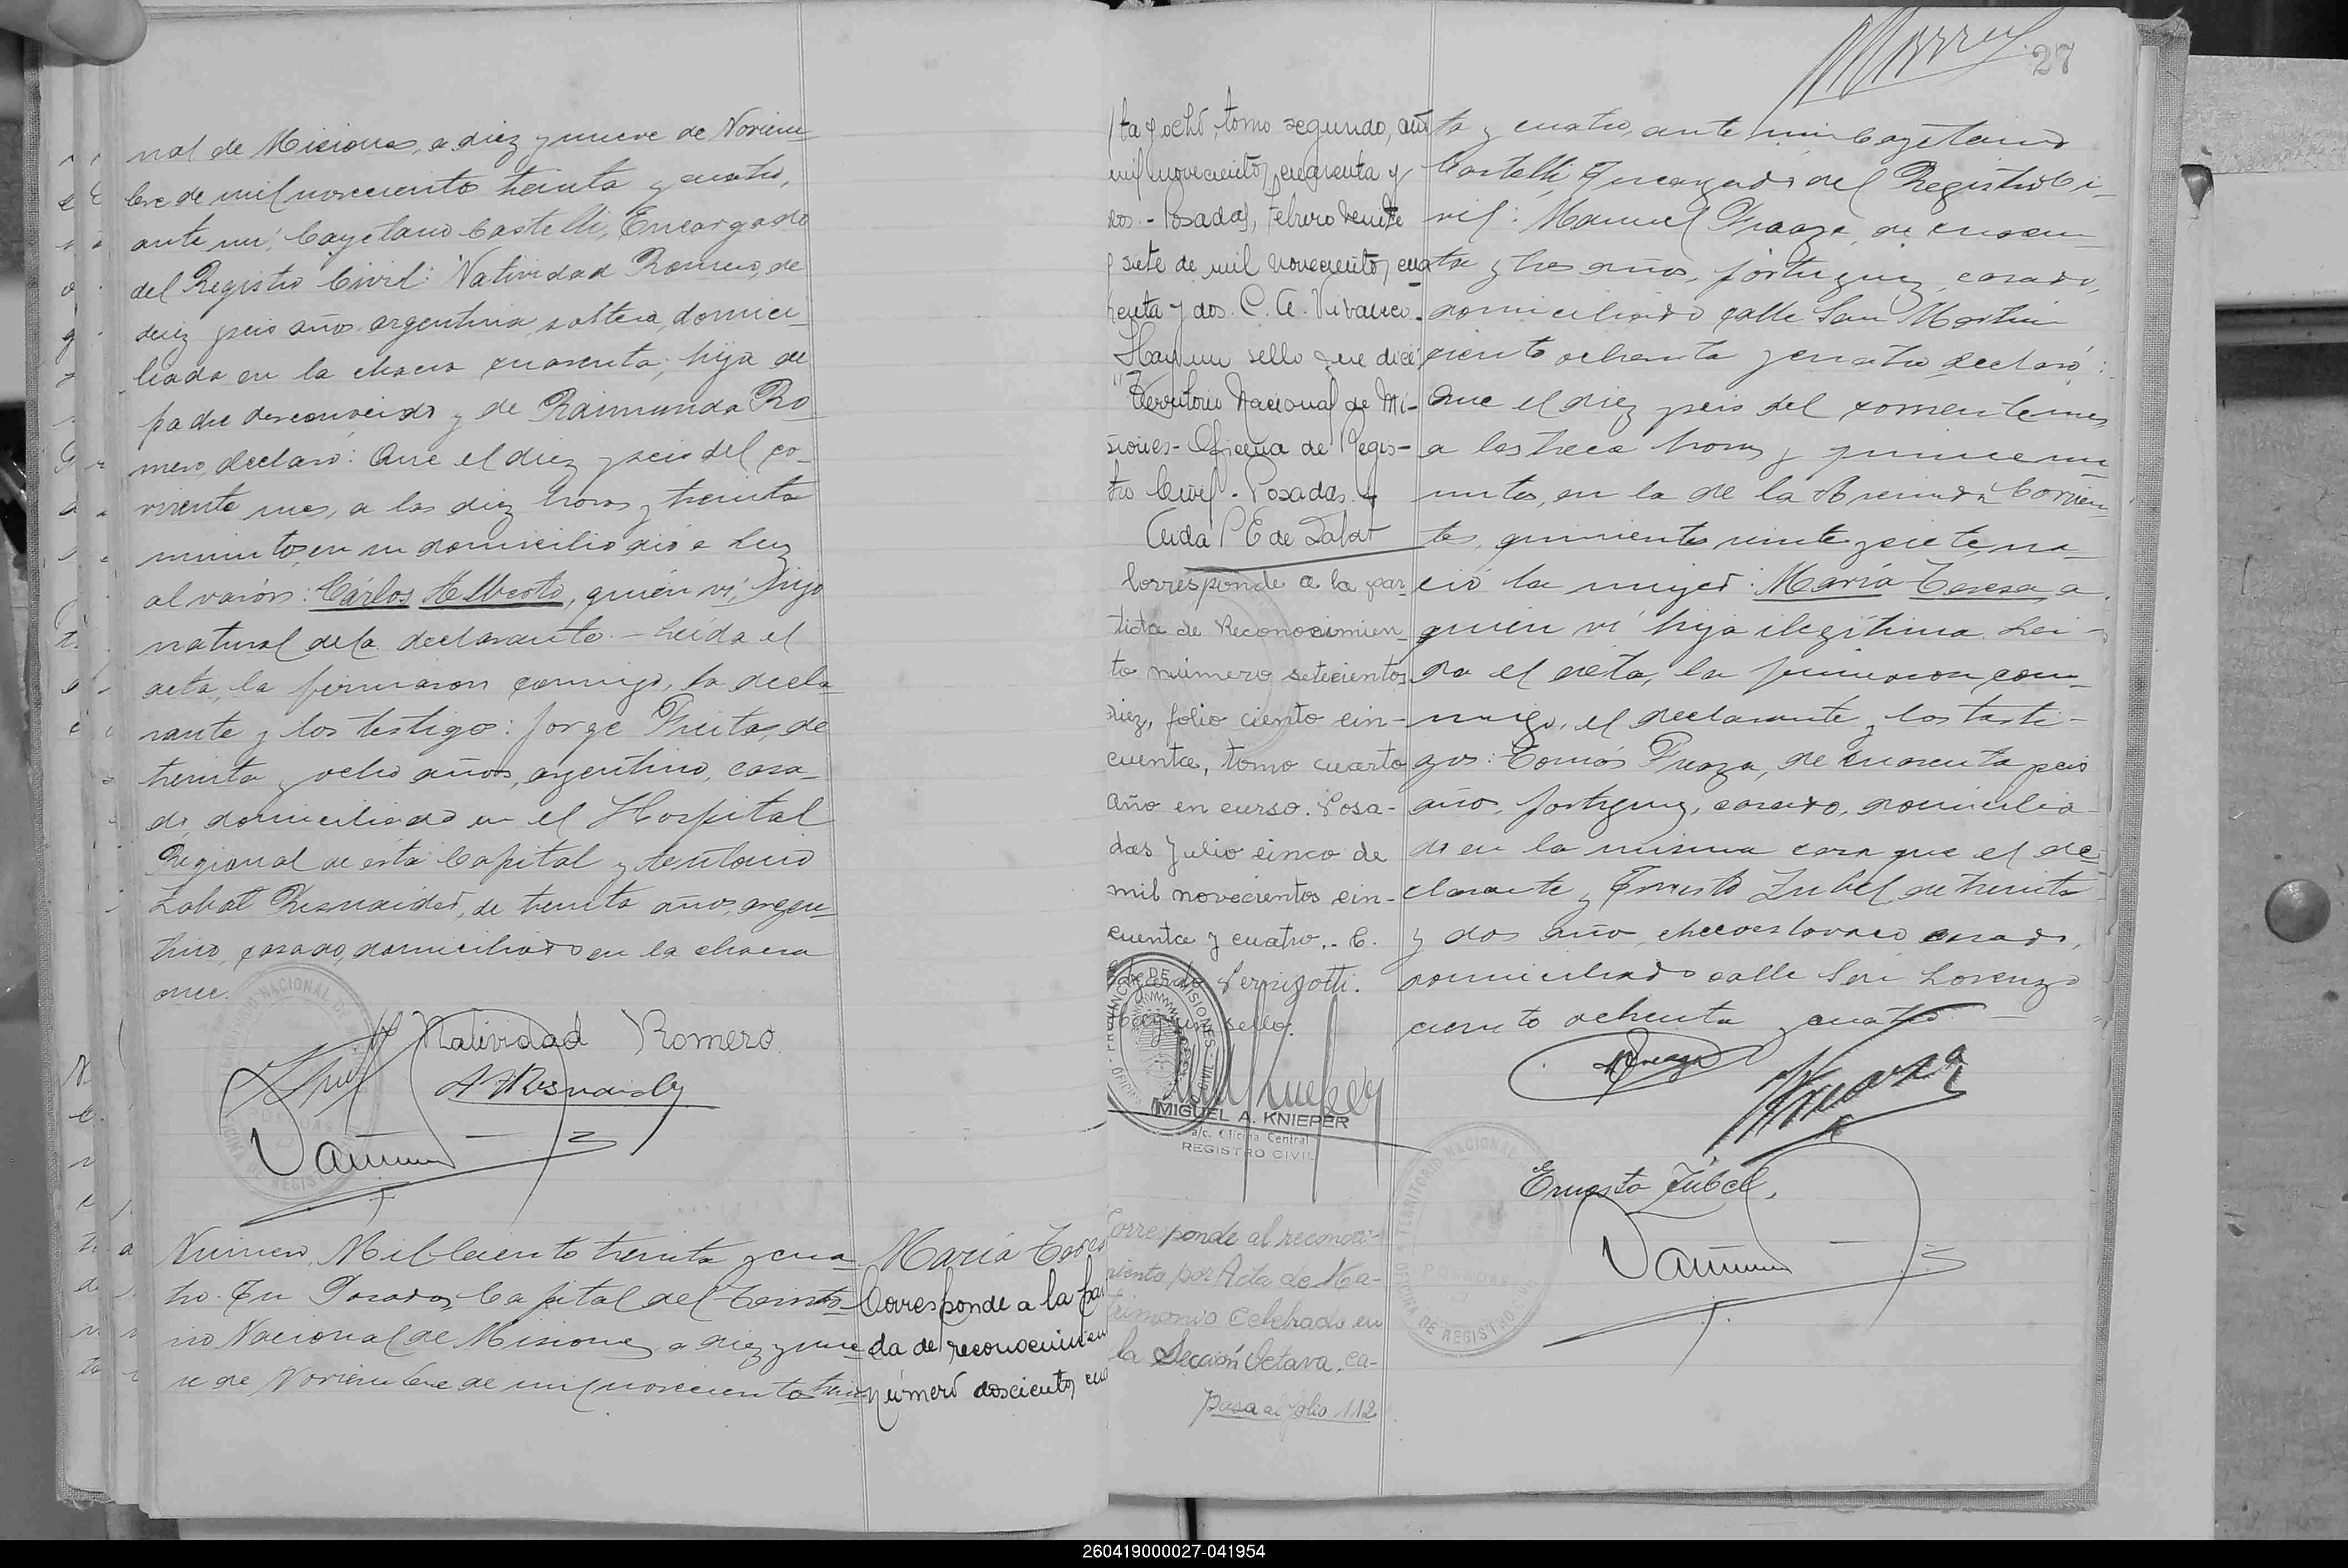 nal de Misiones, a diez y nueve de Noviem-
bre de mil novecientos treinta y cuatro,
ante mí, Cayetano Castelli, Encargado
del Registro Civil: Natividad Romero, de
diez y seis años, argentina, soltera, domici-
liada en la chacra cuarenta; hija de
padre desconocido y de Raimunda Ro-
mero, declaró: Que el diez y seis del co-
rriente mes, a las diez horas y treinta
minutos, en su domicilio dió a luz
al varón: Cárlos Alberto, quién ví, hijo
natural de la declarante. - Leída el
acta, la firmaron conmigo, la decla-
rante y los testigos: Jorge Freita, de
treinta y ocho años, argentino, casa-
do, domiciliado en el Hospital
Regional de esta Capital y
de treinta años, argen-
tino, casado, domiciliado en la chacra
once.
Natividad Romero
Número Mil ciento treinta y cua-
tro. En Posadas, Capital del Territo-
rio Nacional de Misiones, a diez y nue-
ve de Noviembre de mil novecientos trein
María Teres
Corresponde a la par
da de reconocimien
número doscientos cu
27
ta y ocho, tomo segundo, año
mil novecientos cincuenta y
dos. - Posadas, Febrero veinte
y siete de mil novecientos cua
renta y dos. C. A. Vivanco.
Hay un sello que dice
"Territorio Nacional de Mi-
siones - Oficina de Regis-
tro Civil - Posadas
Corresponde a la par-
tida de Reconocimien-
to número setecientos
diez, folio ciento cin-
cuenta, tomo cuarto
año en curso. Posa-
das Julio cinco de
mil novecientos cin-
cuenta y cuatro. - C.
Pernigotti.
Hay un sello.
MIGUEL A. KNIEPER
a/c. Oficina Central
REGISTRO CIVIL
Corresponde al reconoci-
miento por Acta de Ma-
trimonio celebrado en
la Sección Octava, ca-
Pasa al folio 112
ta y cuatro, ante mí Cayetano
Castelli, Encargado del Registro Ci-
vil: Manuel Fraga, de cuaren-
ta y tres años, portugués, casado,
domiciliado calle San Martín
ciento ochenta y cuatro declaró:
Que el diez y seis del corriente mes,
a las trece horas y quince mi-
nutos, en la de la Avenida Corrien-
tes, quinientos veinte y siete, na-
ció la mujer: María Teresa, a
quién ví hija ilegítima. Leí-
da el acta, la firmaron con-
migo, el declarante y los testi-
gos: Tomás Fraga, de cuarenta y seis
años, portugués, casado, domicilia-
do en la misma casa que el de-
clarante y Ernesto Zubel, de treinta
y dos años, checoeslovaco casado,
domiciliado calle San Lorenzo
ciento ochenta y cuatro. -
Ernesto Zubel.
260419000027-041954